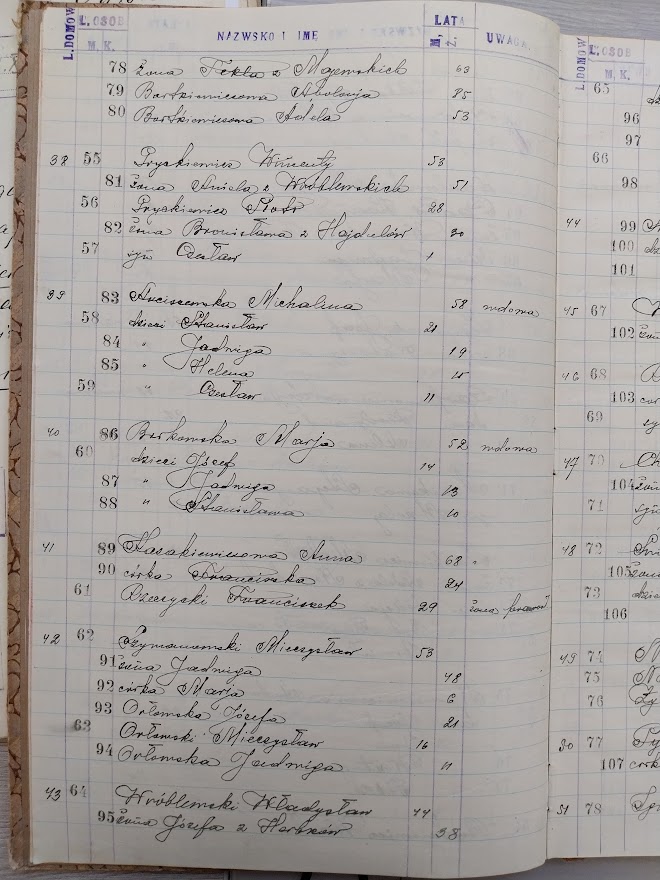 L. DOMÓW L. OSOB NAZWSKO I IMĘ LATA UWAGA
M. K. M. Ż.
78 żona Tekla z Majewskich 63
79 Bartkiewiczowa Apolonja 85
80 Bartkiewiczowa Adela 53
38 55 Pryskiewicz Wincenty 53
81 żona Aniela z Wróblewskich 51
56 Pryskiewicz Piotr 28
82 żona Bronisława z Hajdulów 20
57 syn Czesław 1
39 83 Michalina 58 wdowa
58 dzieci Stanisław 21
84 " Jadwiga 19
85 " Helena 15
59 " Czesław 11
40 86 Borkowska Marja 52 wdowa
60 dzieci Józef 14
87 " Jadwiga 13
88 " Stanisława 10
41 89 Anna 68 "
90 córka Franciszka 24
61 Franciszek 29 żona
42 62 Szymanowski Mieczysław 53
91 żona Jadwiga 48
92 córka Marja 6
93 Orłowska Józefa 21
63 Orłowski Mieczysław 16
94 Orłowska Jadwiga 11
43 64 Wróblewski Władysław 44
95 żona Józefa z 38
L. DOMÓW L. OSOB
M. K.
65
96
97
66
98
44 99
100
101
45 67
102
46 68
103
69
47 70
104
71
48 72
105
73
106
49 74
75
76
50 77
107
51 78